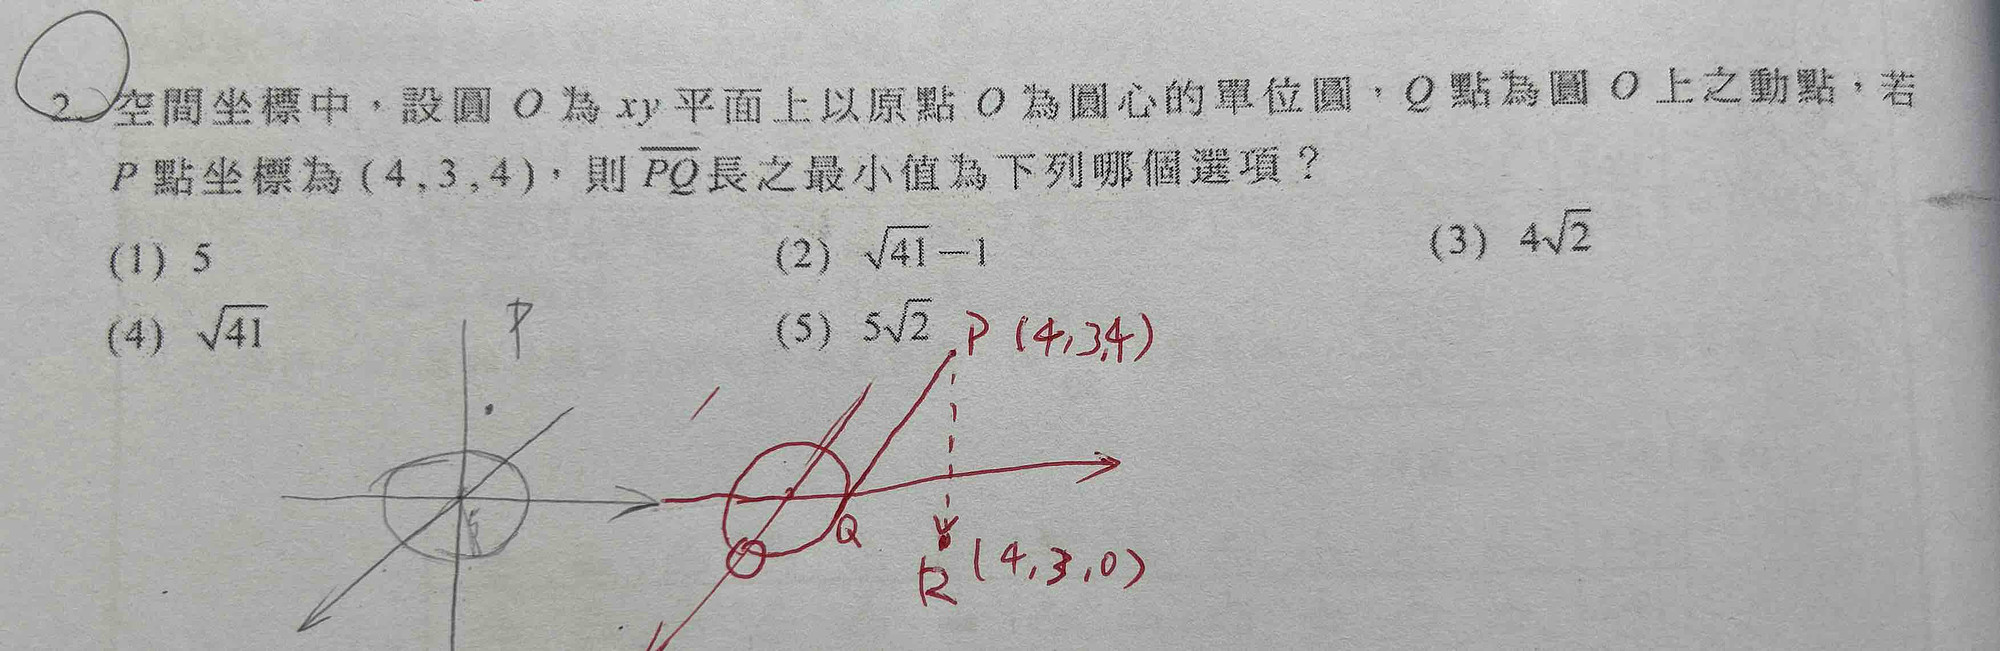 2. 空間坐標中，設圓 O 為 xy 平面上以原點 O 為圓心的單位圓，Q 點為圓 O 上之動點，若
P 點坐標為 (4,3,4)，則 \overline{PQ} 長之最小值為下列哪個選項？
(1) 5 (2) √41−1 (3) 4√2
(4) √41 (5) 5√2
P
P (4,3,4)
Q
R (4,3,0)